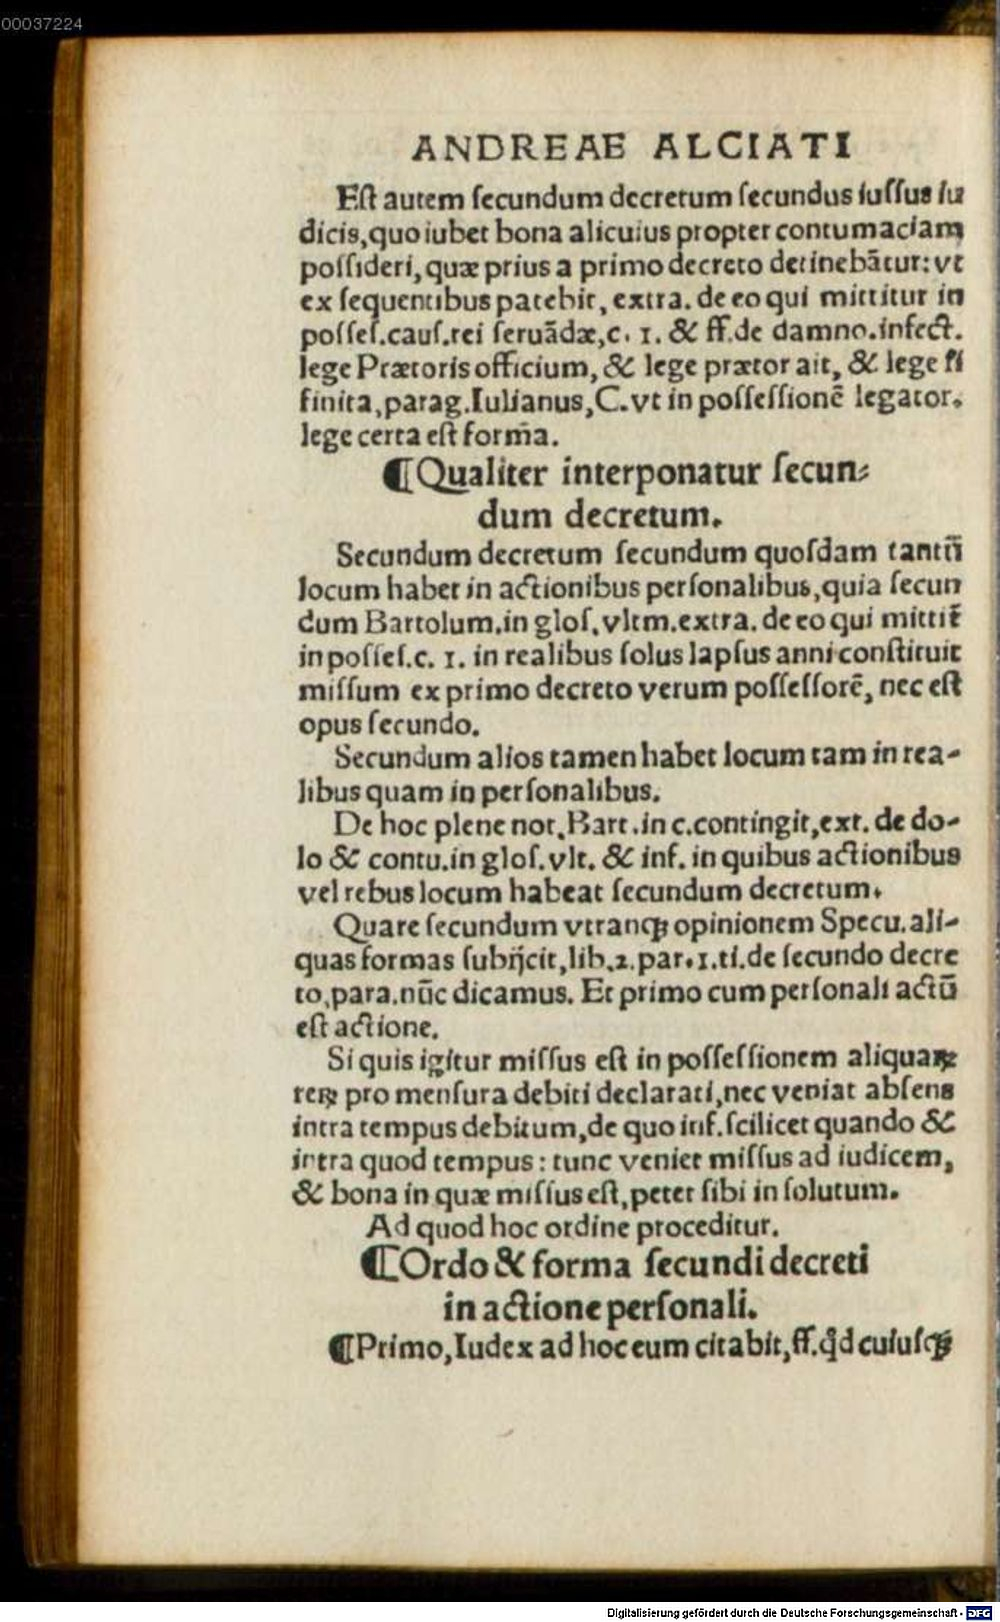 00037224
ANDREAE ALCIATI
Eſt autem ſecundum decretum ſecundus iuſſus iu
dicis,quo iubet bona alicuius propter contumaciam
poſſideri,quæ prius a primo decreto detinebãtur: vt
ex ſequentibus patebit, extra. de eo qui mittitur in
poſſeſ.cauſ.rei ſeruãdæ,c. 1. & ff.de damno.infect.
lege Prætoris officium, & lege prætor ait, & lege ſi
finita,parag.Iulianus,C.vt in poſſeſſionẽ legator.
lege certa eſt forma.
¶Qualiter interponatur ſecun⸗
dum decretum.
Secundum decretum ſecundum quoſdam tantũ
locum habet in actionibus perſonalibus,quia ſecun
dum Bartolum.in gloſ.vltm.extra. de eo qui mittit̃
in poſſeſ.c. 1. in realibus ſolus lapſus anni conſtituit
miſſum ex primo decreto verum poſſeſſorẽ, nec eſt
opus ſecundo.
Secundum alios tamen habet locum tam in rea-
libus quam in perſonalibus.
De hoc plene not.Bart.in c.contingit,ext. de do-
lo & contu.in gloſ.vlt. & inf. in quibus actionibus
vel rebus locum habeat ſecundum decretum.
Quare ſecundum vtranqꝫ opinionem Specu.ali-
quas formas ſubijcit,lib.2.par.1.ti.de ſecundo decre
to,para.nũc dicamus. Et primo cum perſonali actũ
eſt actione.
Si quis igitur miſſus eſt in poſſeſſionem aliquaꝝ
reꝝ pro menſura debiti declarati,nec veniat abſens
intra tempus debitum,de quo inf.ſcilicet quando &
intra quod tempus: tunc veniet miſſus ad iudicem,
& bona in quæ miſſus eſt,petet ſibi in ſolutum.
Ad quod hoc ordine proceditur.
¶Ordo & forma ſecundi decreti
in actione perſonali.
¶Primo, Iudex ad hoc eum citabit,ff.q̃d cuiuſqꝫ
Digitalisierung gefördert durch die Deutsche Forschungsgemeinschaft - DFG